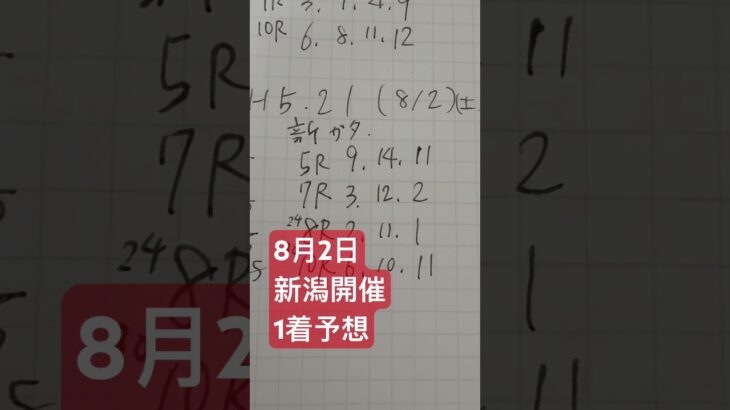 11R 3. 1. 4. 9
10R 6. 8. 11. 12
5. 21 (8/2)(土
新ガタ.
5R 9. 14. 11
7R 3. 12. 2
24 8R 11. 1
10R 10. 11
8月2日
新潟開催
1着予想